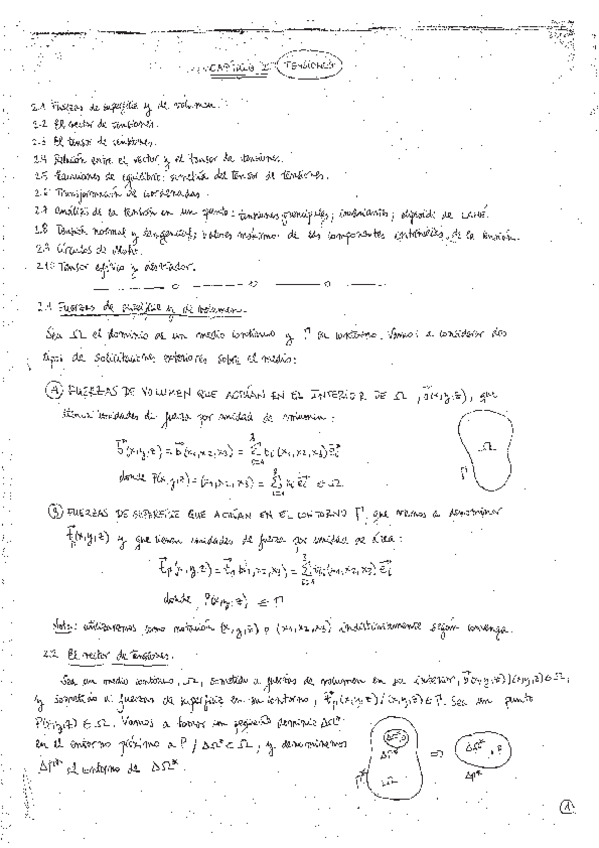 CAPÍTULO 2 TENSIONES
2.1 Fuerzas de superficie y de volumen.
2.2 El vector de tensiones.
2.3 El tensor de tensiones.
2.4 Relación entre el vector y el tensor de tensiones.
2.5 Ecuaciones de equilibrio: simetría del tensor de tensiones.
2.6 Transformación de coordenadas.
2.7 Análisis de la tensión en un punto: tensiones principales; invariantes; elipsoide de LAMÉ.
2.8 Tensión normal y tangencial; valores máximos de las componentes de la tensión.
2.9 Círculos de Mohr.
2.10 Tensor esférico y desviador.
2.1 Fuerzas de superficie y de volumen.
Sea Ω el dominio de un medio continuo y Γ su contorno. Vamos a considerar dos
tipos de solicitaciones exteriores sobre el medio:
(A) FUERZAS DE VOLUMEN QUE ACTÚAN EN EL INTERIOR DE Ω, b⃗(x,y,z), que
tienen unidades de fuerza por unidad de volumen:
b⃗(x,y,z) = b⃗(x1,x2,x3) = Σ bi(x1,x2,x3) e⃗i
donde P(x,y,z) = (x1,x2,x3) = Σ xi e⃗i ∈ Ω
Ω
Γ
(B) FUERZAS DE SUPERFICIE QUE ACTÚAN EN EL CONTORNO Γ, que vamos a denominar
y que tienen unidades de fuerza por unidad de área:
donde P(x,y,z) ∈ Γ
Nota: utilizaremos como notación (x,y,z) o (x1,x2,x3) indistintamente según convenga.
2.2 El vector de tensiones.
Sea un medio continuo, Ω, sometido a fuerzas de volumen en su interior, b⃗(x,y,z)/(x,y,z)∈Ω,
y sometido a fuerzas de superficie en su contorno, (x,y,z)/(x,y,z)∈Γ. Sea un punto
P(x,y,z) ∈ Ω. Vamos a tomar un pequeño dominio ΔΩ*
en el entorno próximo a P / ΔΩ* ⊂ Ω, y denominemos
ΔΓ* el contorno de ΔΩ*.
ΔΩ*
ΔΓ*
Γ
Ω
⇒
ΔΩ* .P
ΔΓ*
1